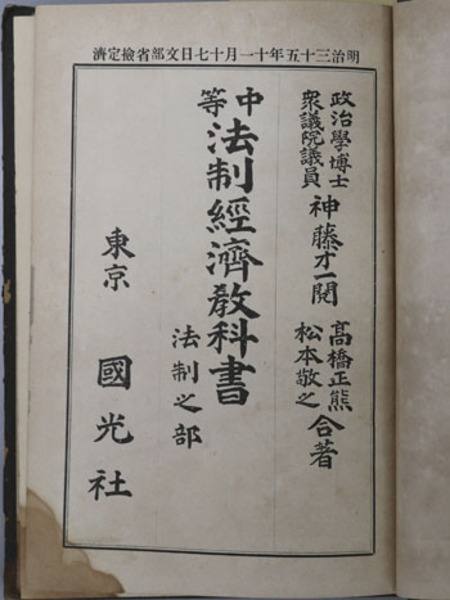 明治三十五年十一月十七日文部省撿定濟
政治學博士
衆議院議員
神藤才一閲
高橋正熊
松本敬之
合著
中等
法制經濟敎科書
法制之部
東京
國光社